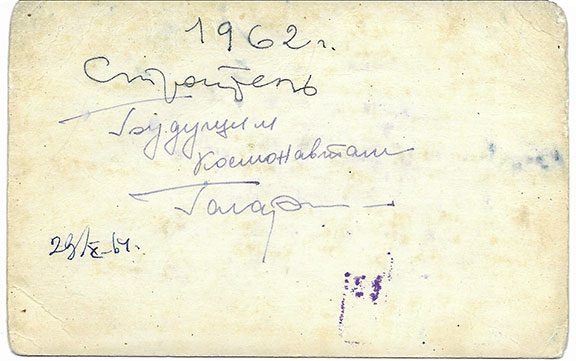 1962 г.
Строитель
Будущим
Космонавтам
Гагарин
29/X-61.